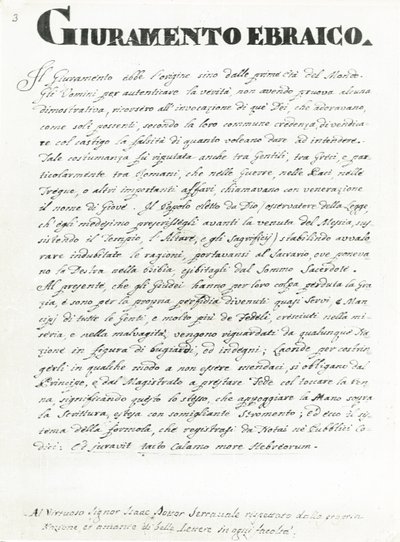 3
GIURAMENTO EBRAICO.
Il Giuramento ebbe l'origine sino dalle prime età del Mondo.
Gli Uomini per autenticare la verità, non avendo pruova alcuna
dimostrativa, ricorsero all'invocazione di que' Dei, che adoravano,
come soli possenti, secondo la loro commune credenza, di vendica-
re col castigo la falsità di quanto voleano dare ad intendere.
Tale costumanza fù riputata anche tra Gentili, tra Greci, e par-
ticolarmente tra Romani, che nelle Guerre, nelle Paci, nelle
Tregue, o altri importanti affari, chiamavano con venerazione
il nome di Giove. Il Popolo eletto da Dio, osservatore della Legge,
ch'egli medesimo prescrissegli avanti la venuta del Messia, sus
sistendo il Tempio, l'Altare, e gli Sagrifizj, stabilindo avvalo,
rare indubitate le ragioni, portavansi al Sacrario, ove poneva
no la Destra nella Bibia, esibitagli dal Sommo Sacerdote.
Al presente, che gli Giudei hanno per loro colpa perduta la Gra
zia, e sono per la propria perfidia divenuti quasi Servi, e Man
cipj di tutte le Genti, e molto più de Fedeli, cresciuti nella mi
seria, e nella malvagità, vengono riguardati da qualunque Na
zione in figura di bugiardi, ed indegni; Laonde per costrin
gerli in qualche modo a non essere mendaci, si obligano dal
Principe, e dal Magistrato a prestare Fede col toccare la Pen
na, significando questo lo stesso, che appoggiare la Mano sopra
la Scrittura, estesa con somigliante Stromento; ed ecco il si
stema della formola, che registrasi da Notai nè Pubblici Co
dici: Et juravit tacto Calamo more Hebreorum.
Al Virtuoso Signor Isaac Dottor Serravale rispettato dalla propria
Nazione ed amante di belle Lettere in ogni facoltà.